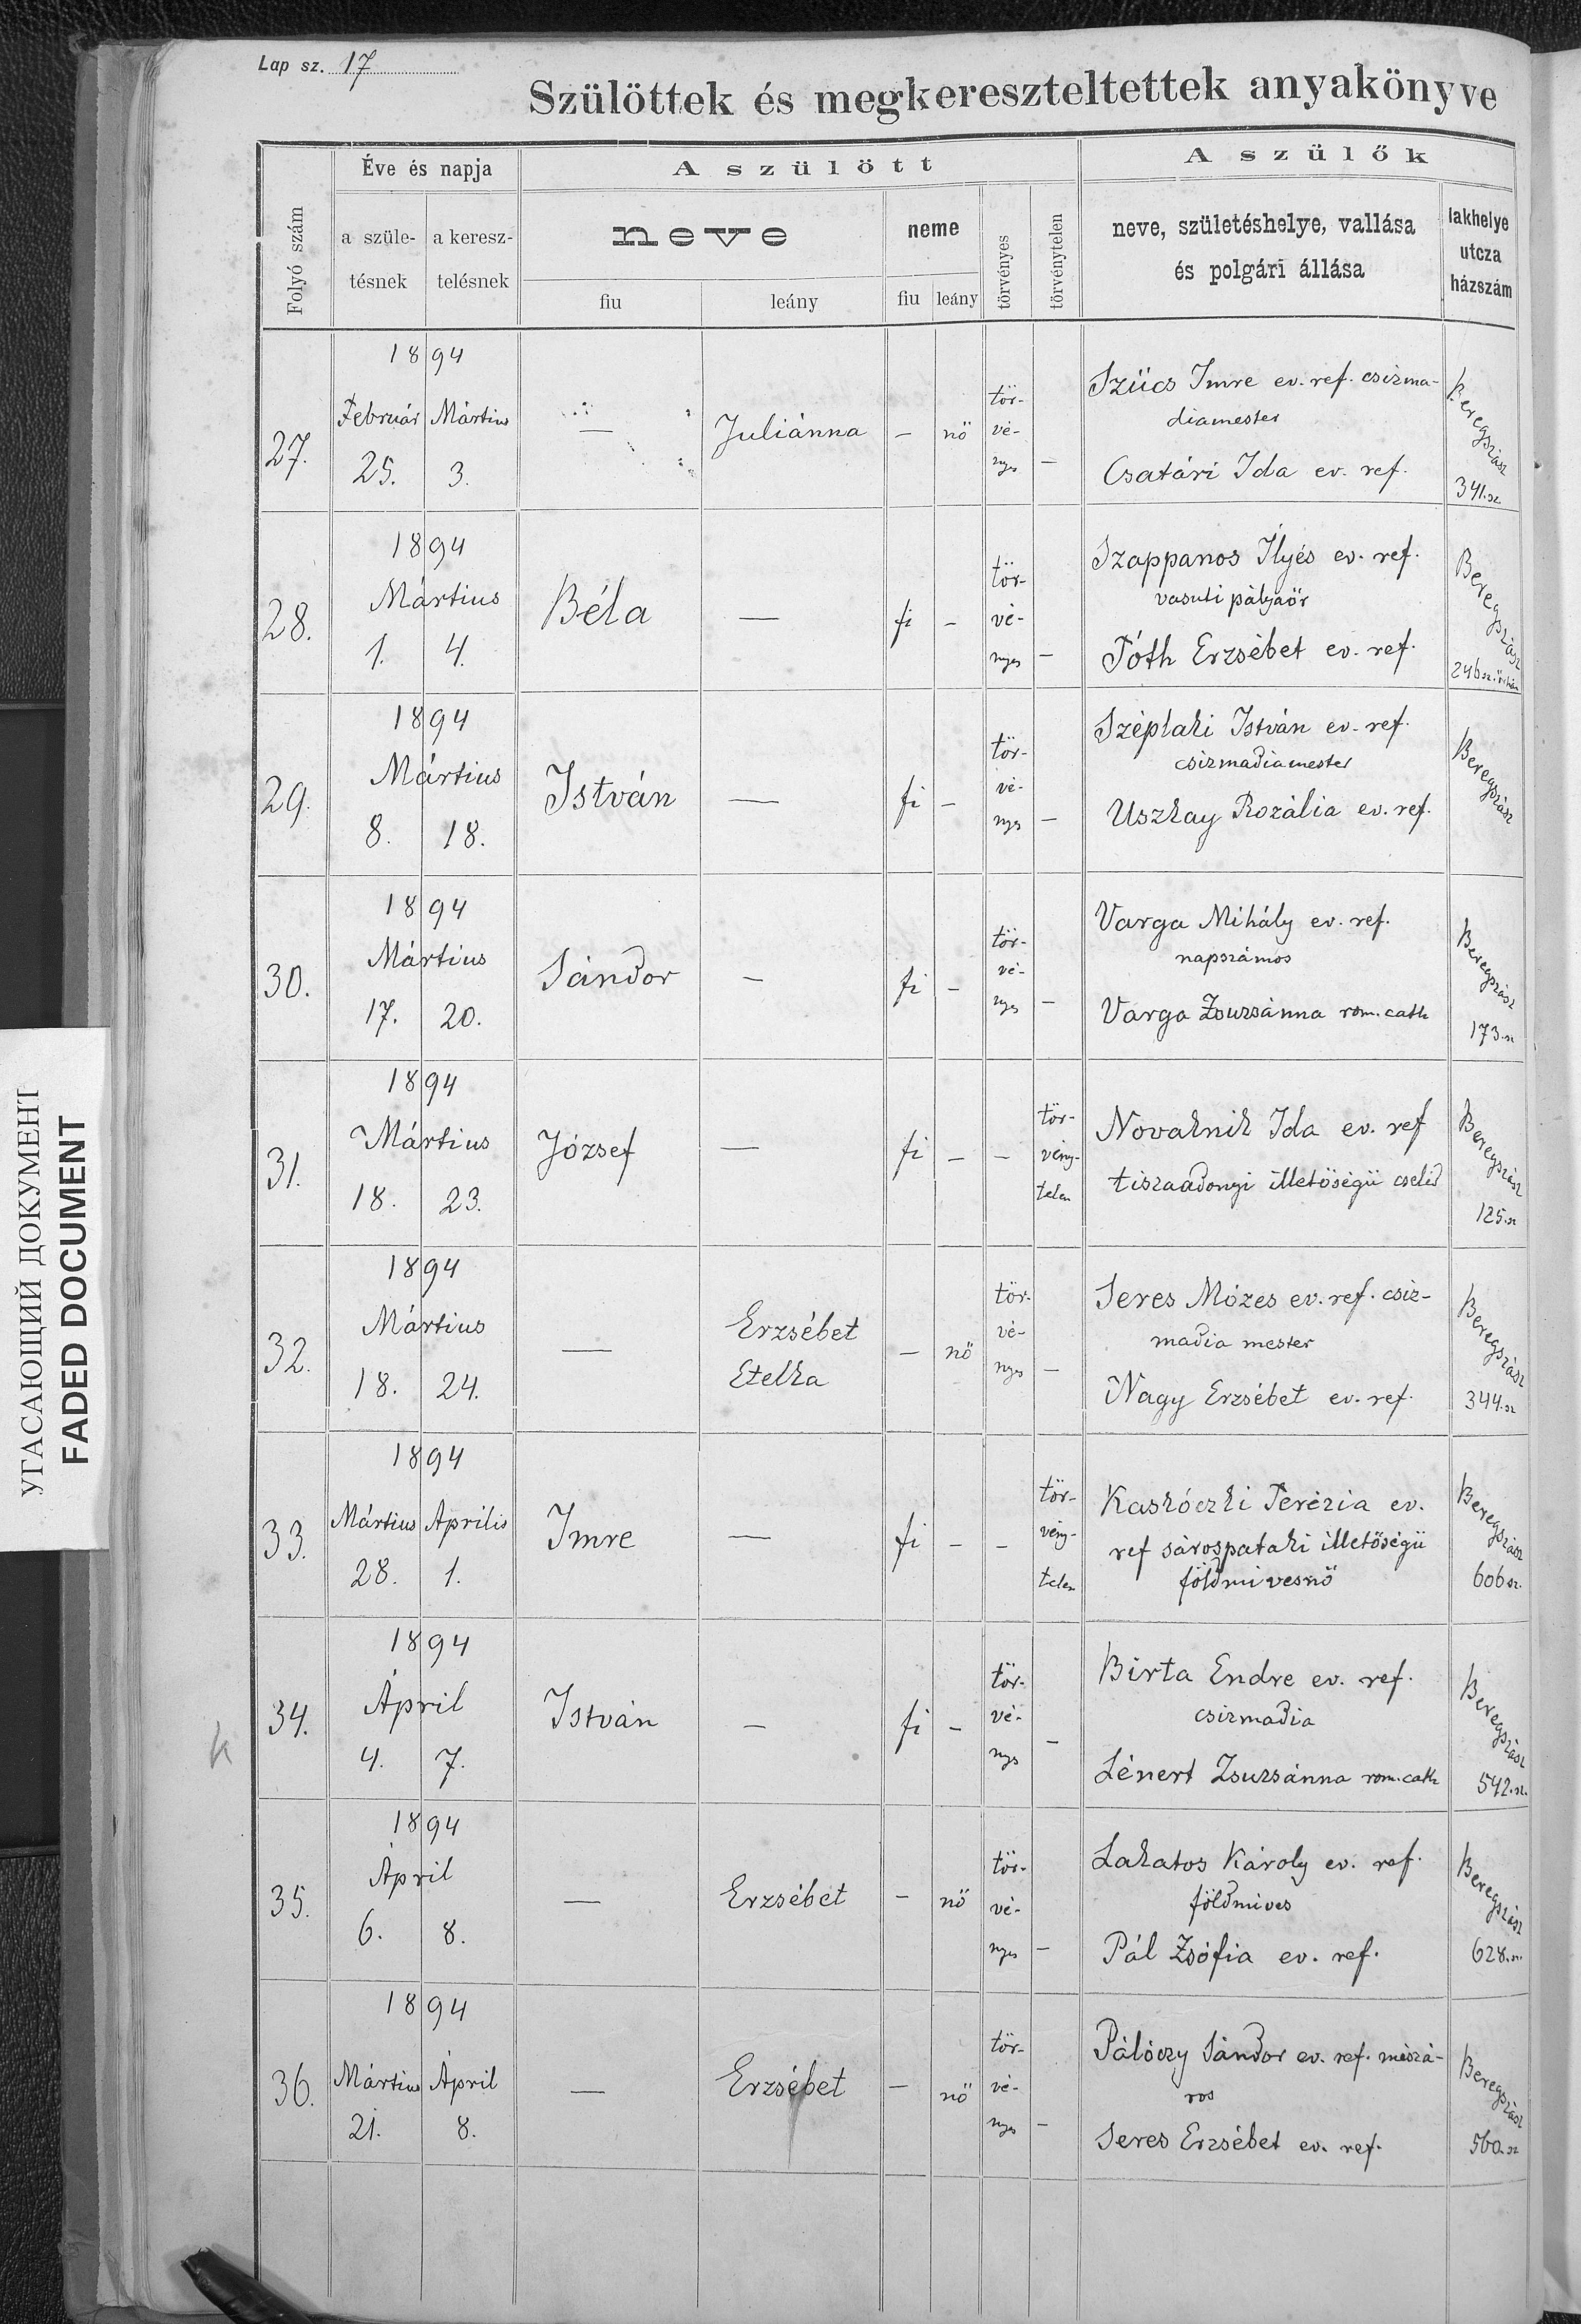 Lap sz. 17
Szülöttek és megkereszteltettek anyakönyve
Folyó szám
Éve és napja
a szüle-
tésnek
a keresz-
telésnek
A szülött
neve
fiu
leány
neme
fiu
leány
törvényes
törvénytelen
A szülők
neve, születéshelye, vallása
és polgári állása
lakhelye
utcza
házszám
27.
1894
Február Mártius
25. 3.
—
Juliánna
— nő
tör-
vé-
nyes
—
Szücs Imre ev. ref. csizma-
diamester
Csatári Ida ev. ref.
Beregszász
341. sz.
28.
1894
Mártius
1. 4.
Béla
—
fi —
tör-
vé-
nyes
—
Szappanos Ilyés ev. ref.
vasuti pályaőr
Tóth Erzsébet ev. ref.
Beregszász
246 sz.
29.
1894
Mártius
8. 18.
István
—
fi —
tör-
vé-
nyes
—
Széplaki István ev. ref.
csizmadiamester
Uszkay Rozália ev. ref.
Beregszász
30.
1894
Mártius
17. 20.
Sándor
—
fi —
tör-
vé-
nyes
—
Varga Mihály ev. ref.
napszámos
Varga Zsuzsánna rom. cath
Beregszász
173. sz
31.
1894
Mártius
18. 23.
József
—
fi — —
tör-
vény-
telen
Novaknik Ida ev. ref
tiszaadonyi illetőségü cseléd
Beregszász
125. sz
32.
1894
Mártius
18. 24.
—
Erzsébet
Etelka
— nő
tör-
vé-
nyes
—
Seres Mózes ev. ref. csiz-
madia mester
Nagy Erzsébet ev. ref.
Beregszász
344. sz
33.
1894
Mártius Aprilis
28. 1.
Imre
—
fi — —
tör-
vény-
telen
Kaskóczki Terézia ev.
ref sárospataki illetőségü
földmivesnő
Beregszász
606 sz.
K
34.
1894
Április
4. 7.
István
—
fi —
tör-
vé-
nyes
—
Birta Endre ev. ref.
csizmadia
Lénert Zsuzsánna rom. cath
Beregszász
542. sz.
35.
1894
Ápril
6. 8.
—
Erzsébet
— nő
tör-
vé-
nyes
—
Lakatos Károly ev. ref.
földmives
Pál Zsófia ev. ref.
Beregszász
628. sz.
36.
1894
Mártius Ápril
21. 8.
—
Erzsébet
— nő
tör-
vé-
nyes
—
Pálóczy Sándor ev. ref. mészá-
ros
Seres Erzsébet ev. ref.
Beregszász
560. sz
УГАСАЮЩИЙ ДОКУМЕНТ
FADED DOCUMENT